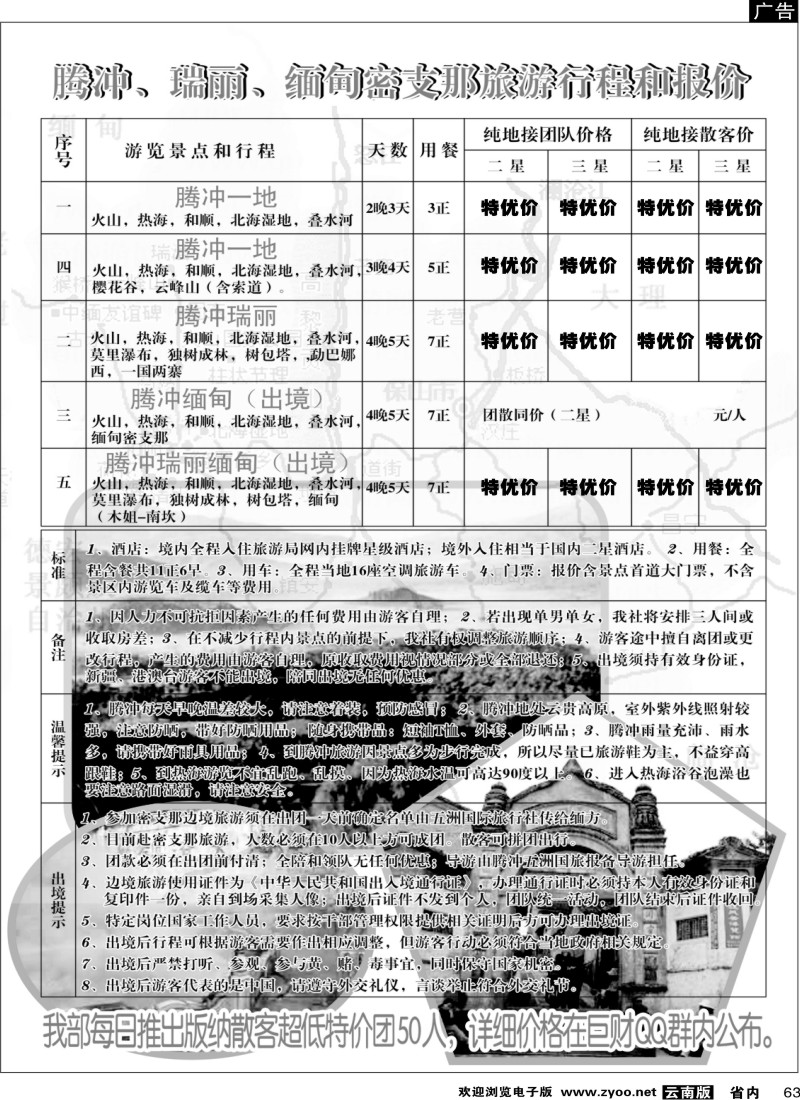 广告
腾冲、瑞丽、缅甸密支那旅游行程和报价
序号 游览景点和行程 天数 用餐 纯地接团队价格 纯地接散客价
二星 三星 二星 三星
一 腾冲一地 2晚3天 3正 特优价 特优价 特优价 特优价
火山，热海，和顺，北海湿地，叠水河
四 腾冲一地 3晚4天 5正 特优价 特优价 特优价 特优价
火山，热海，和顺，北海湿地，叠水河，
樱花谷，云峰山（含索道）。
二 腾冲瑞丽 4晚5天 7正 特优价 特优价 特优价 特优价
火山，热海，和顺，北海湿地，叠水河，
莫里瀑布，独树成林，树包塔，勐巴娜
西，一国两寨
三 腾冲缅甸（出境） 4晚5天 7正 团散同价（二星） 元/人
火山，热海，和顺，北海湿地，叠水河，
缅甸密支那
五 腾冲瑞丽缅甸（出境） 4晚5天 7正 特优价 特优价 特优价 特优价
火山，热海，和顺，北海湿地，叠水河，
莫里瀑布，独树成林，树包塔，缅甸
（木姐-南坎）
标准
1、酒店：境内全程入住旅游局网内挂牌星级酒店；境外入住相当于国内二星酒店。 2、用餐：全
程含餐共11正6早。3、用车：全程当地16座空调旅游车。4、门票：报价含景点首道大门票，不含
景区内游览车及缆车等费用。
备注
1、因人力不可抗拒因素产生的任何费用由游客自理； 2、若出现单男单女，我社将安排三人间或
收取房差；3、在不减少行程内景点的前提下，我社有权调整旅游顺序；4、游客途中擅自离团或更
改行程，产生的费用由游客自理，原收取费用视情况部分或全部退还；5、出境须持有效身份证，
新疆、港澳台游客不能出境，陪同出境无任何优惠。
温馨提示
1、腾冲每天早晚温差较大，请注意着装，预防感冒；2、腾冲地处云贵高原，室外紫外线照射较
强，注意防晒，带好防晒用品； 随身携带品：短袖T恤、外套、防晒品；3、腾冲雨量充沛、雨水
多，请携带好雨具用品； 4、到腾冲旅游因景点多为步行完成，所以尽量已旅游鞋为主，不益穿高
跟鞋；5、到热海游览不宜乱跑、乱摸，因为热海水温可高达90度以上。6、进入热海浴谷泡澡也
要注意路面湿滑，请注意安全。
出境提示
1、参加密支那边境旅游须在出团一天前确定名单由五洲国际旅行社传给缅方。
2、目前赴密支那旅游，人数必须在10人以上方可成团。散客可拼团出行。
3、团款必须在出团前付清；全陪和领队无任何优惠；导游由腾冲五洲国旅报备导游担任。
4、边境旅游使用证件为《中华人民共和国出入境通行证》，办理通行证时必须持本人有效身份证和
复印件一份，亲自到场采集人像；出境后证件不发到个人，团队统一活动，团队结束后证件收回。
5、特定岗位国家工作人员，要求按干部管理权限提供相关证明后方可办理出境证。
6、出境后行程可根据游客需要作出相应调整，但游客行动必须符合当地政府相关规定。
7、出境后严禁打听、参观、参与黄、赌、毒事宜，同时保守国家机密。
8、出境后游客代表的是中国，请遵守外交礼仪，言谈举止符合外交礼节。
我部每日推出版纳散客超低特价团50人，详细价格在巨财QQ群内公布。
欢迎浏览电子版 www.zyoo.net 云南版 省内 63